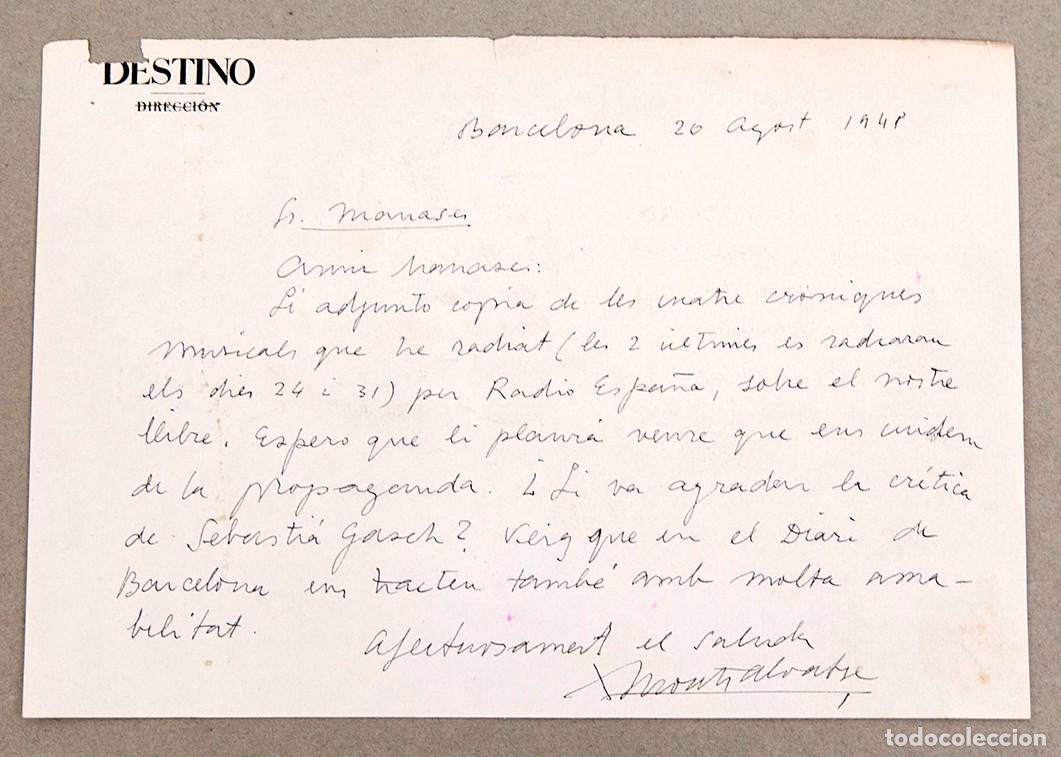 DESTINO
DIRECCIÓN
Barcelona 20 Agost 1948
Sr. Manases
Amic Manases:
Li adjunto copia de les cuatre cròniques
musicals que he radiat (les 2 ultimes es radiaran
els dies 24 i 31) per Radio España, sobre el nostre
llibre. Espero que li plaurà veure que ens cuidem
de la propaganda. ¿Li va agradar la crítica
de Sebastiá Gasch? Veig que en el Diari de
Barcelona ens tracten també amb molta ama-
bilitat.
Afectuosament el saluda
X Montsalvatge
todocoleccion